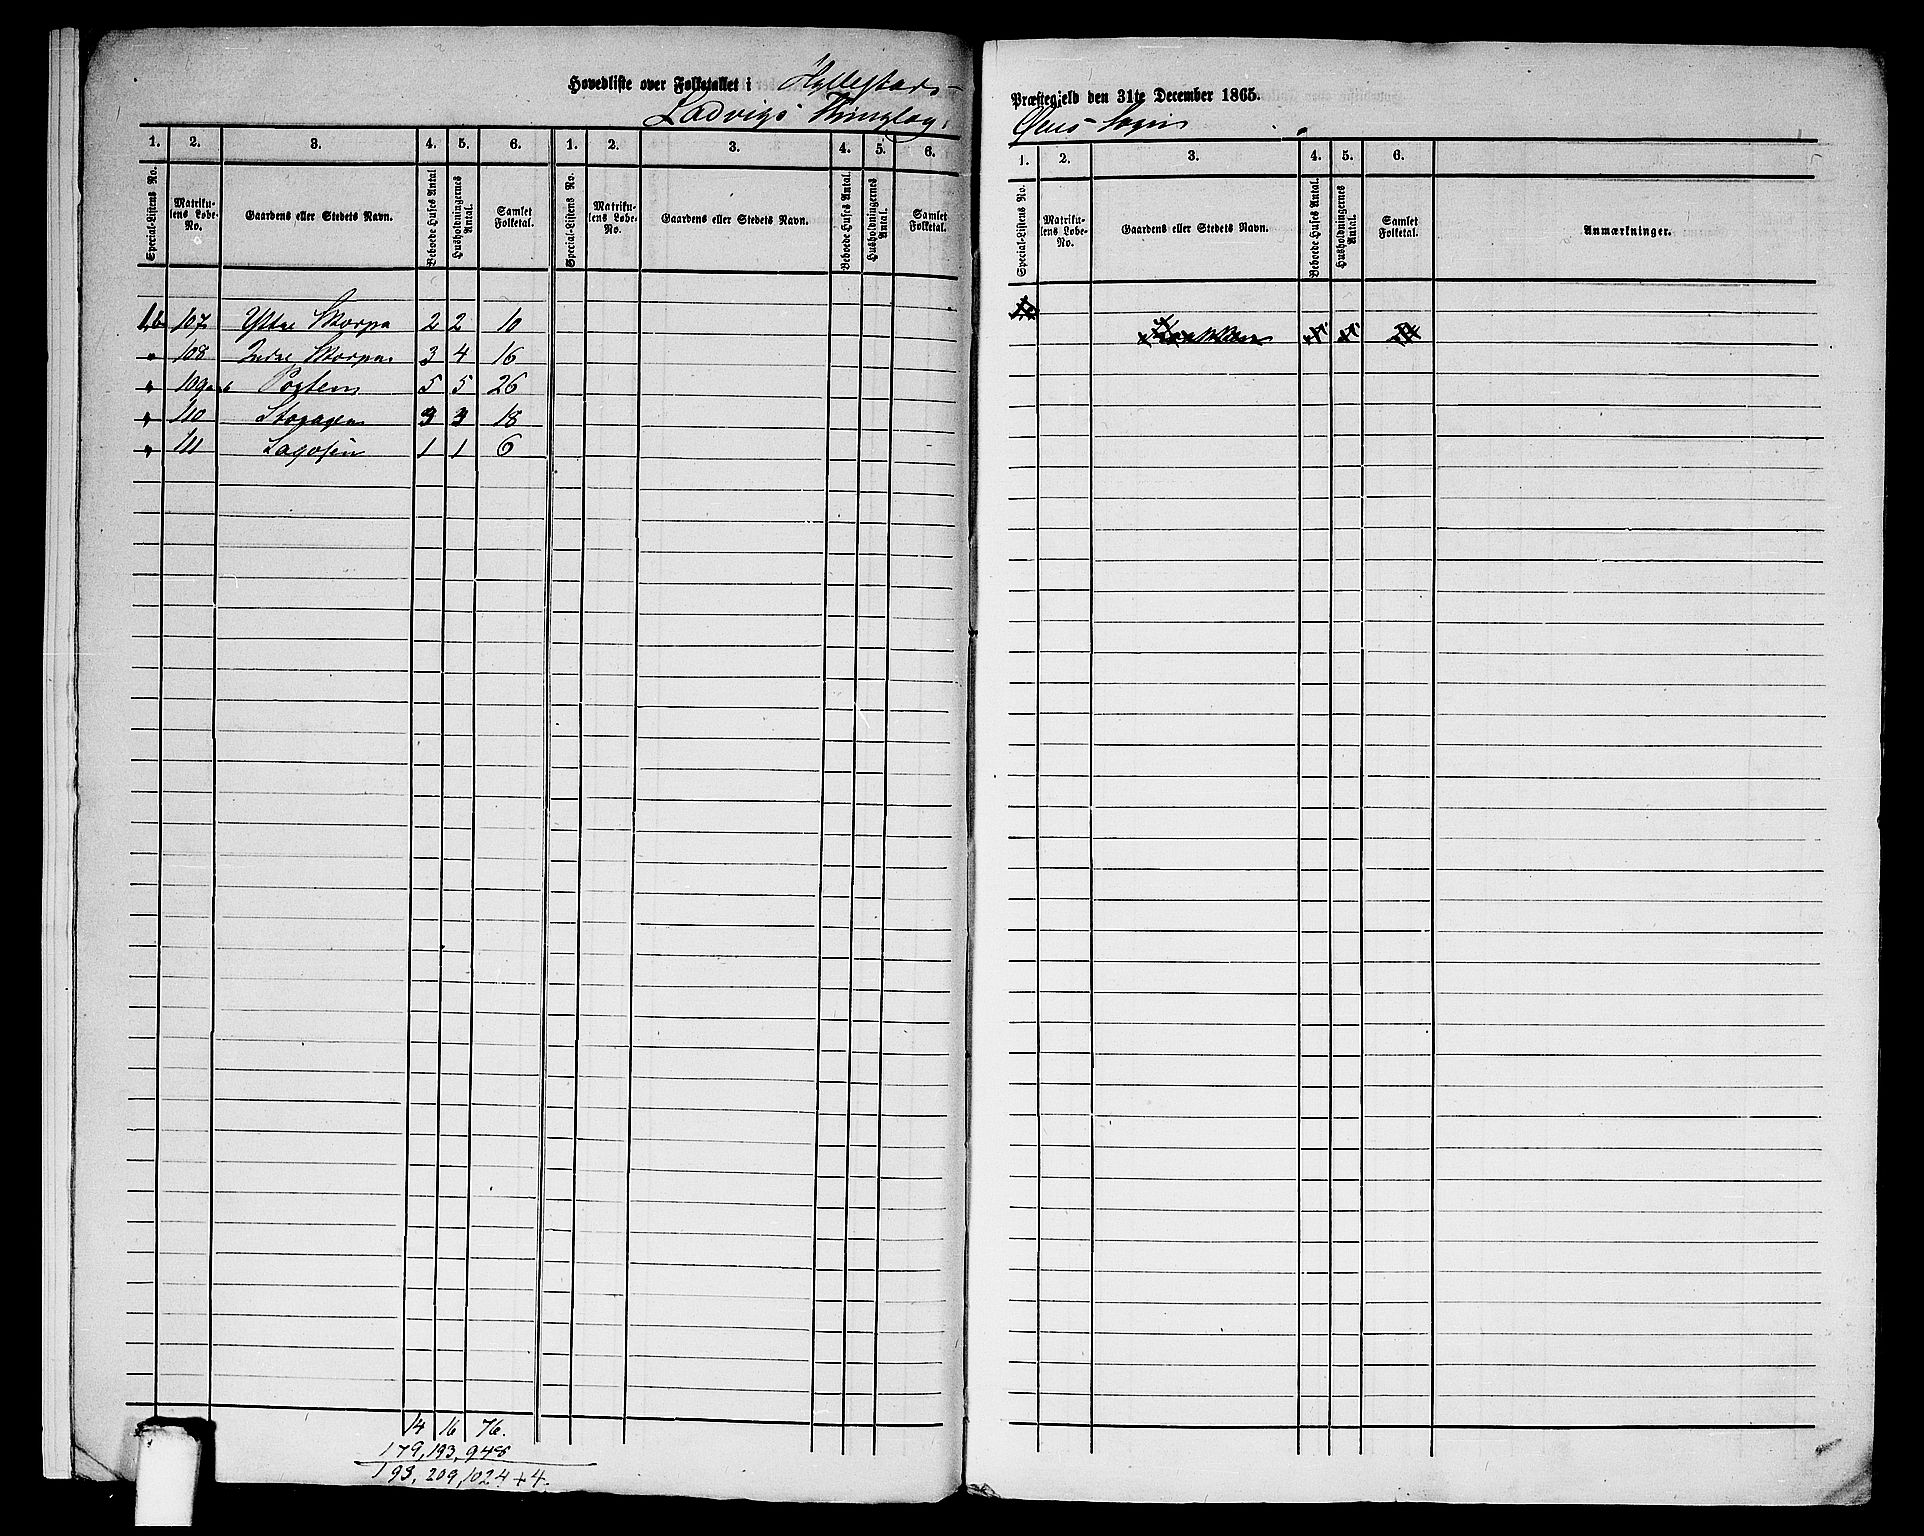 Hovedliste over Folketallet i Hyllestads-
Ladvigs Thinglag,
1. 2. 3. 4. 5. 6. 1. 2. 3. 4. 5. 6.
Special-Listens No. Matriku-lens Løbe-No. Gaardens eller Stedets Navn. Beboede Huses Antal Husholdningernes Antal. Samlet Folketal. Special-Listens No. Matriku-lens Løbe-No. Gaardens eller Stedets Navn. Beboede Huses Antal. Husholdningernes Antal. Samlet Folketal.
107 Yttre Skorpa 2 2 10
" 108 Indre Skorpa 3 4 16
" 109 Porten 5 5 26
" 110 3 18
" 111 1 1 6
14 16 76.
179, 193, 948
193, 209, 1024 + 4.
Præstegjeld den 31te December 1865.
Øens Sogn
1. 2. 3. 4. 5. 6.
Special-Listens No. Matriku-lens Løbe-No. Gaardens eller Stedets Navn. Beboede Huses Antal. Husholdningernes Antal. Samlet Folketal. Anmærkninger.